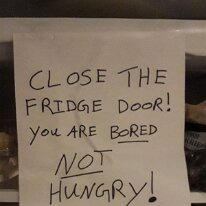 CLOSE THE
FRIDGE DOOR!
YOU ARE BORED
NOT
HUNGRY!